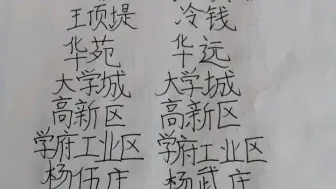 王顶堤 冷钱
华苑 华远
大学城 大学城
高新区 高新区
学府工业区 学府工业区
杨伍庄 杨武庄